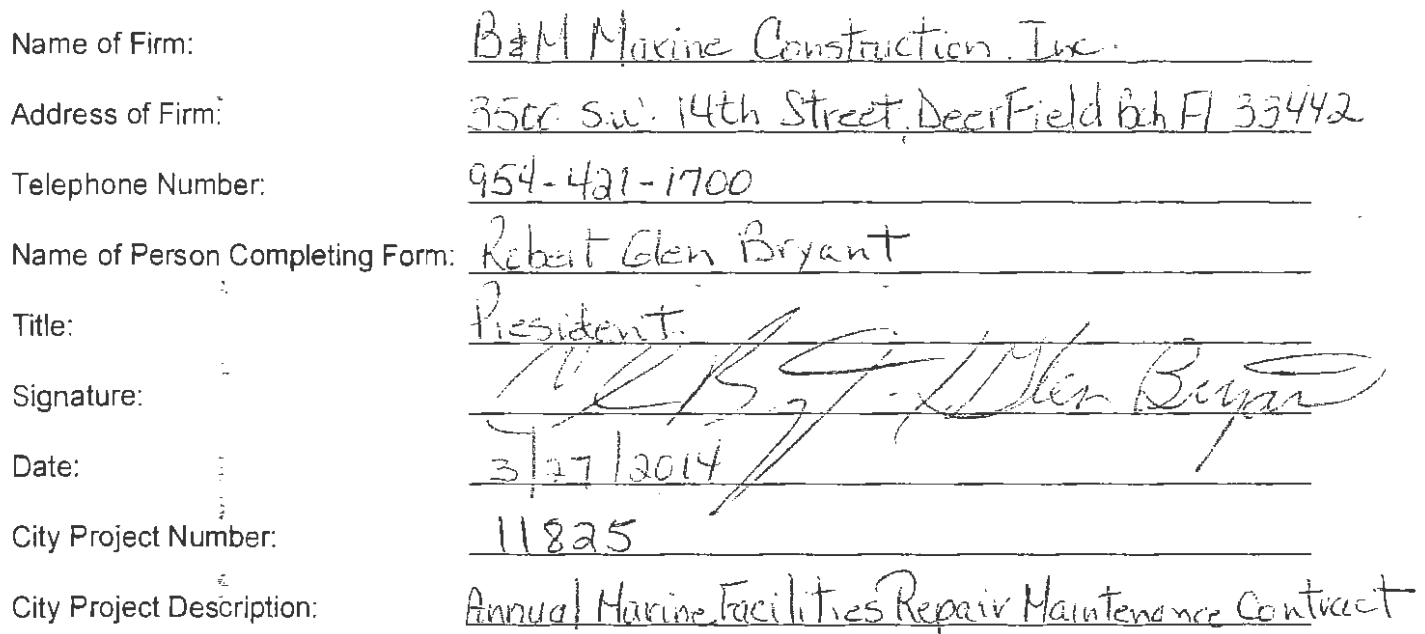 Name of Firm: B&M Marine Construction, Inc.
Address of Firm: 3500 S.W. 14th Street, DeerField Bch Fl 33442
Telephone Number: 954-421-1700
Name of Person Completing Form: Robert Glen Bryant
Title: President
Signature: Glen Bryant
Date: 3/27/2014
City Project Number: 11825
City Project Description: Annual Marine Facilities Repair Maintenance Contract